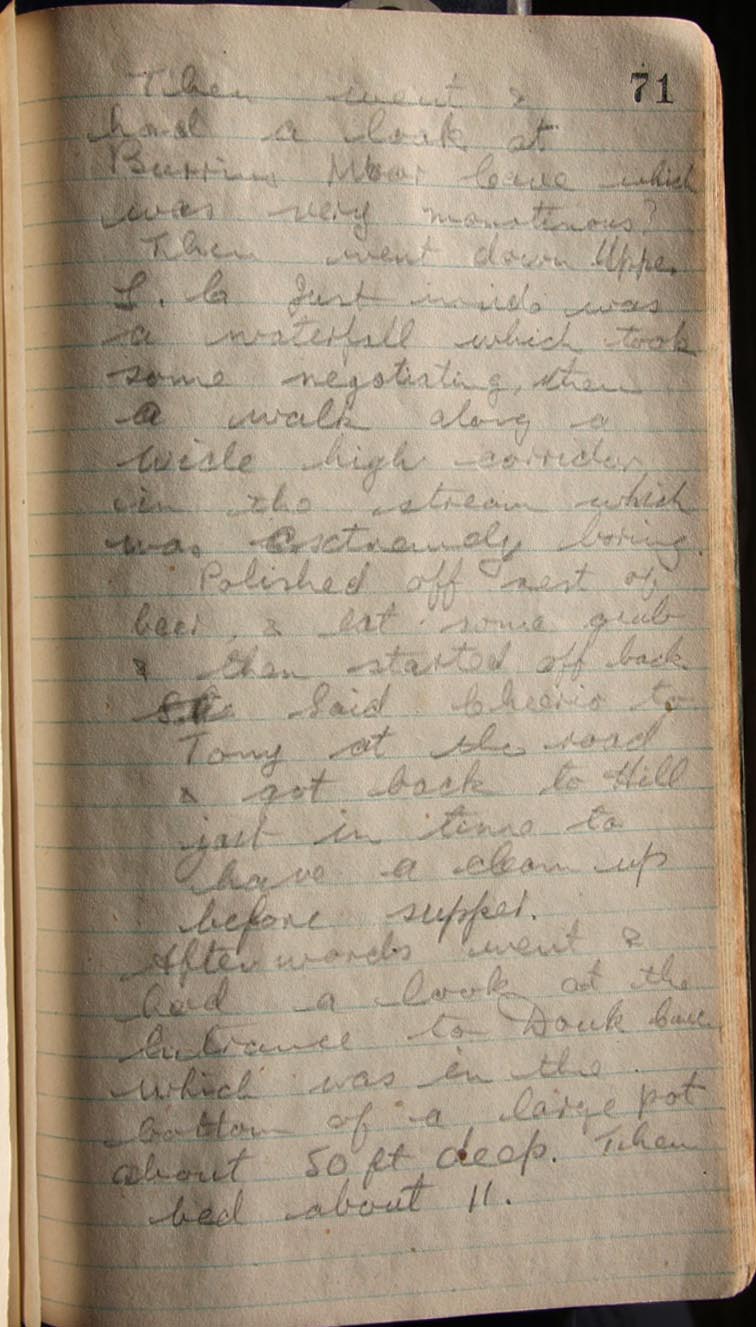 71
Then went &
had a look at
Moor Cave which
was very monotinous?
Then went down Upper
L. C Just inside was
a waterfall which took
some negotiating, then
a walk along a
wide high corridor
in the stream which
was extremely boring.
Polished off rest of
beer, & eat some grub
& then started off back
Said Cheerio to
Tony at the road
& got back to Hill
just in time to
have a clean up
before supper.
Afterwards went &
had a look at the
Entrance to Douk Cave
which was in the
bottom of a large pot
about 50 ft deep. Then
bed about 11.